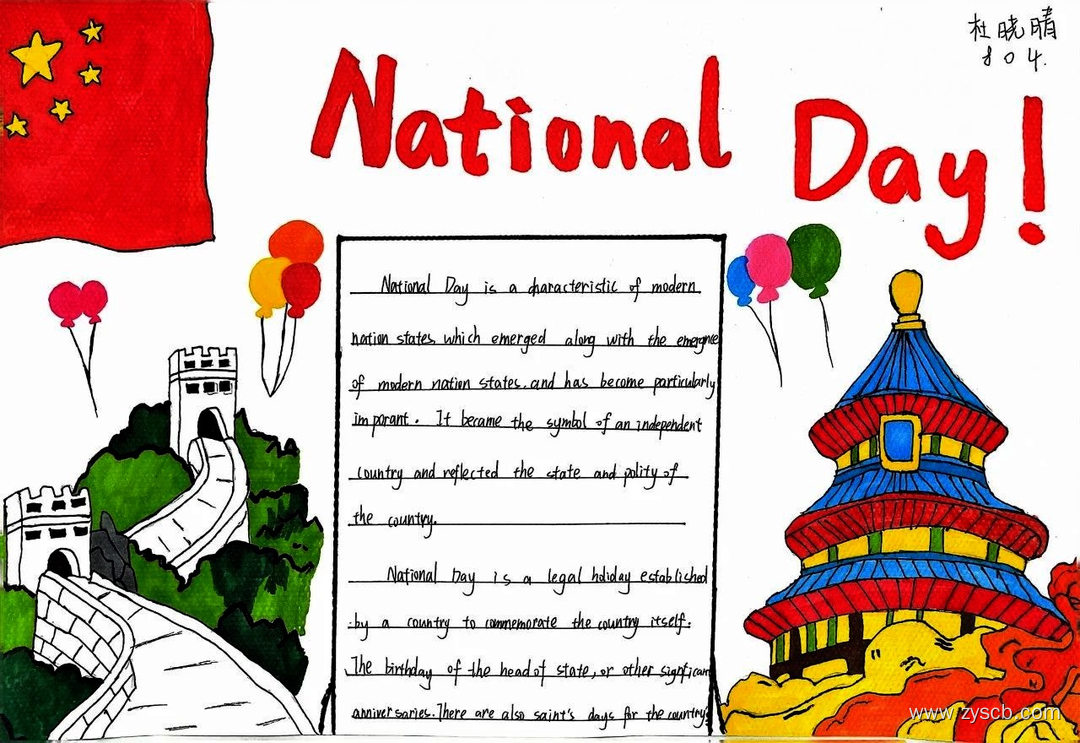 杜晓晴
804.
National Day!
National Day is a characteristic of modern
nation states, which emerged along with the emergence
of modern nation states, and has become particularly
imporant. It became the symbol of an independent
country and reflected the state and polity of
the country.
National Day is a legal holiday established
by a country to commemorate the country itself.
The birthday of the head of state, or other significant
anniversaries. There are also saint's days for the country,
www.zyscb.com